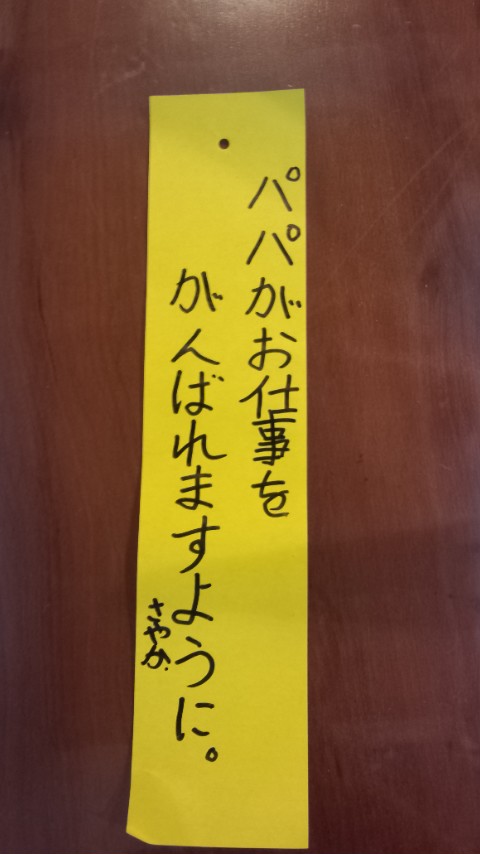 パパがお仕事を
がんばれますように。
さやか